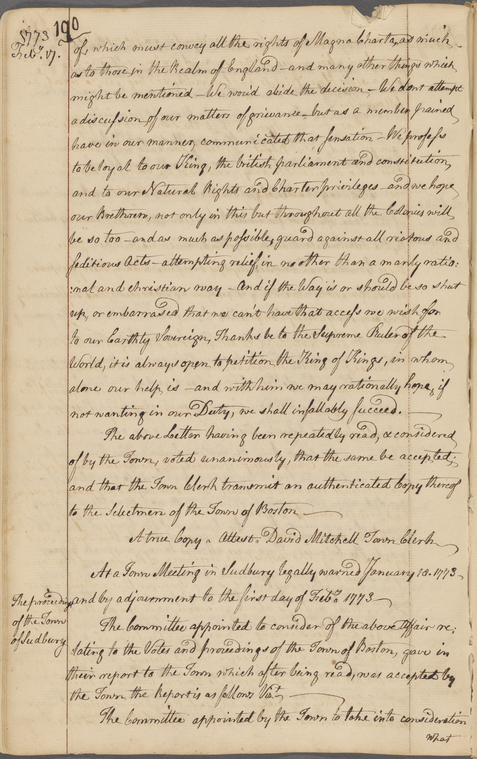 1773 190
Feb.y 17.
of, which must convey all the rights of Magna Charta, as much
as to those in the Realm of England – and many other things which
might be mentioned – We wou'd abide the decision – We dont attempt
a discussion of our matters of grievance – but as a member pained
have in our manner, communicated that sensation – We profess
to be loyal to our King, the british parliament and constitution,
and to our Natural Rights and Charter priviledges – and we hope
our Brethren, not only in this but throughout all the Colonies will
be so too – and as much as possible, guard against all riotous and
seditious Acts – attempting relief, in no other than a manly ratio:
:nal and christian way – And if the Way is or should be so shut
up, or embarrased that we can't have that access we wish for
to our Earthly Sovereign, Thanks be to the Supreme Ruler of the
World, it is always open to petition the King of Kings, in whom
alone our help is – and with him we may rationally hope, if
not wanting in our Duty, we shall infallably succeed. –
The above Letter having been repeatedly read, & considered
of by the Town, voted unanimously, that the same be accepted;
and that the Town Clerk transmit an authenticated Copy thereof
to the Selectmen of the Town of Boston –
A true Copy – Attest. David Mitchell Town Clerk
At a Town Meeting in Sudbury legally warned January 18. 1773
The proceedings and by adjournment to the first day of Feb.y 1773 –
of the Town
of Sudbury
The Committee appointed to consider of the above Affair re:
lating to the Votes and proceedings of the Town of Boston, gave in
their report to the Town which after being read, was accepted by
the Town the Report is as follows Viz.t –
The Committee appointed by the Town to take into consideration
what